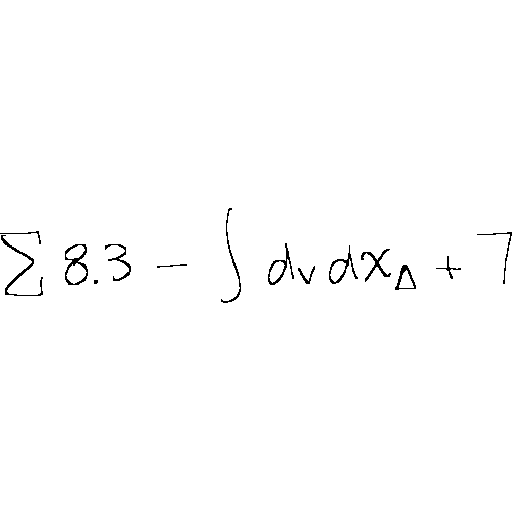 ∑ 8.3 − ∫ d_v dx_Δ + 7